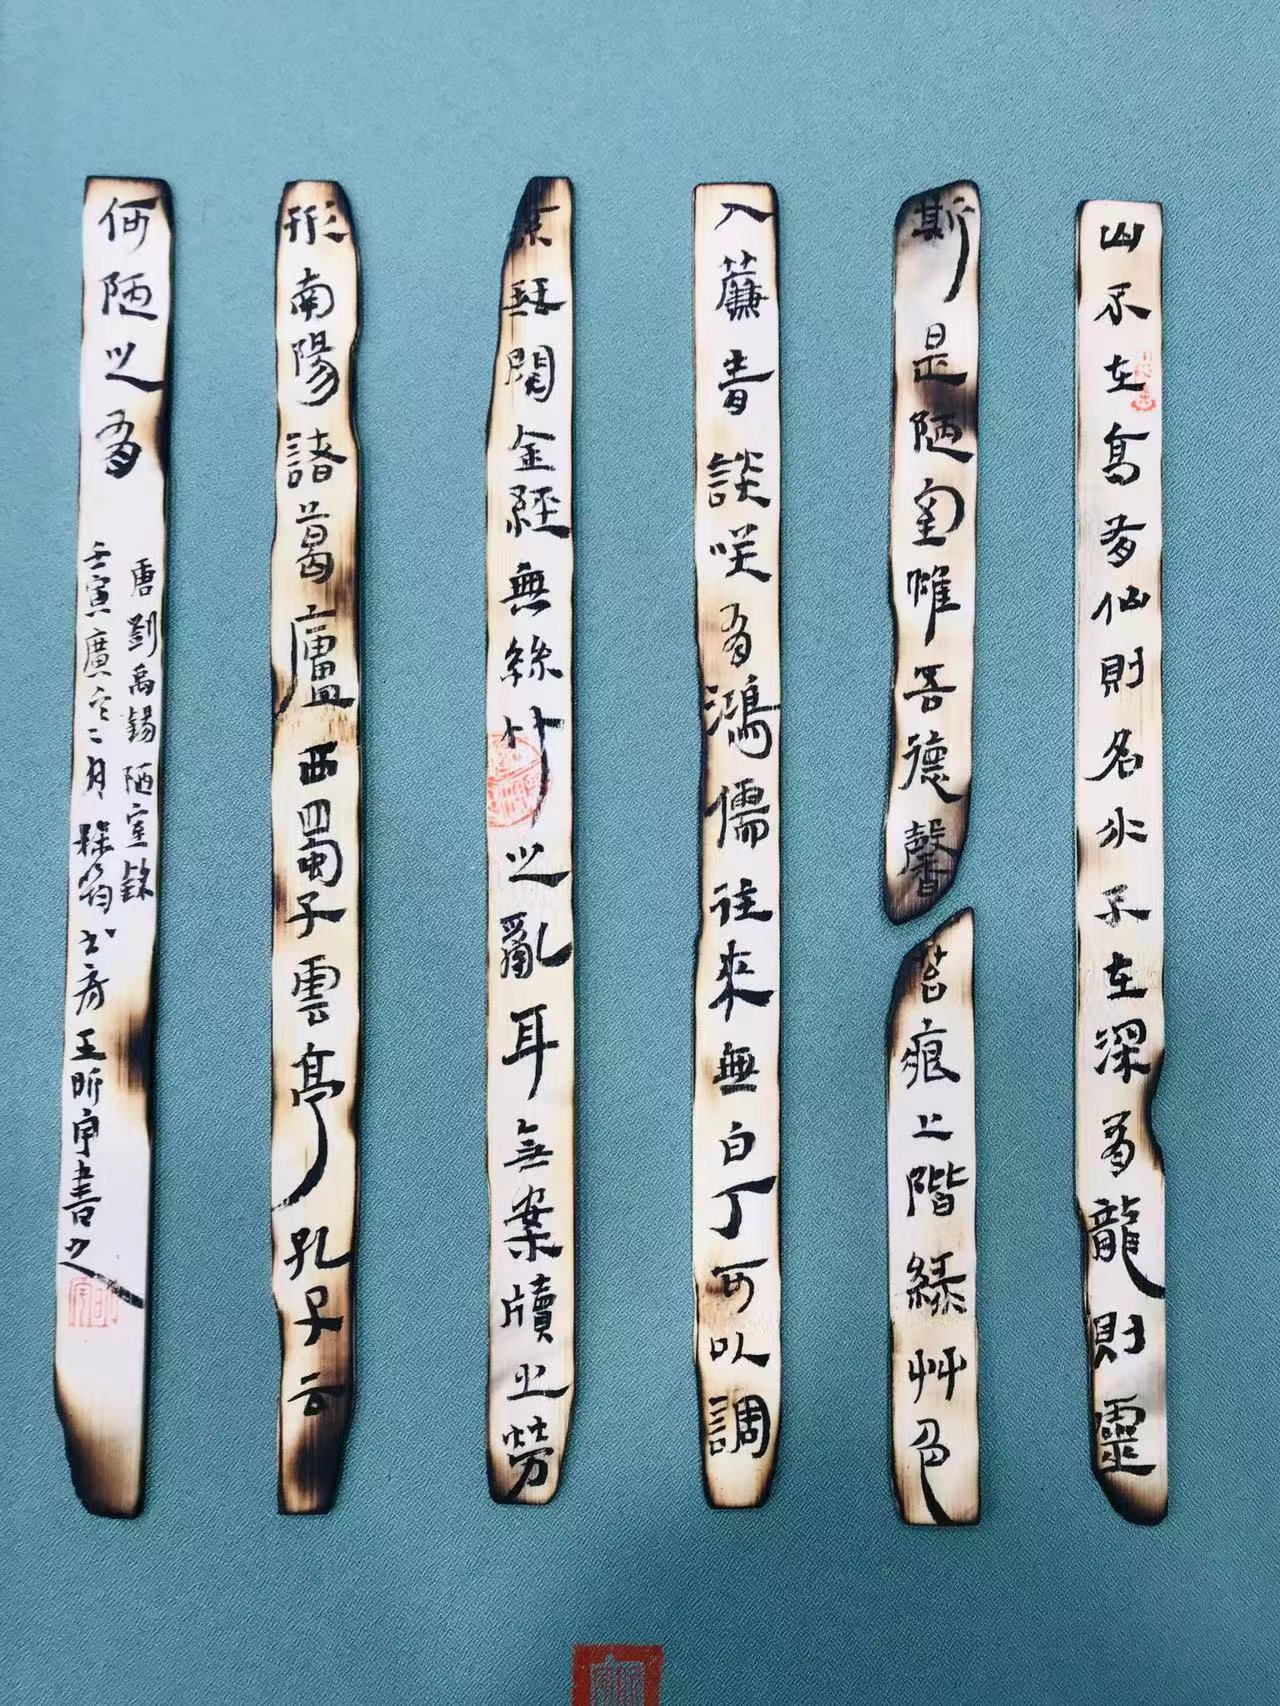 山不在高有仙則名水不在深有龍則靈
斯是陋室惟吾德馨
苔痕上階綠艸色
入簾青談咲有鴻儒往來無白丁可以調
素琴閱金經無絲竹之亂耳無案牘之勞
形南陽諸葛廬西蜀子雲亭孔子云
何陋之有
唐劉禹錫陋室銘
壬寅
二月
王昕宇書之